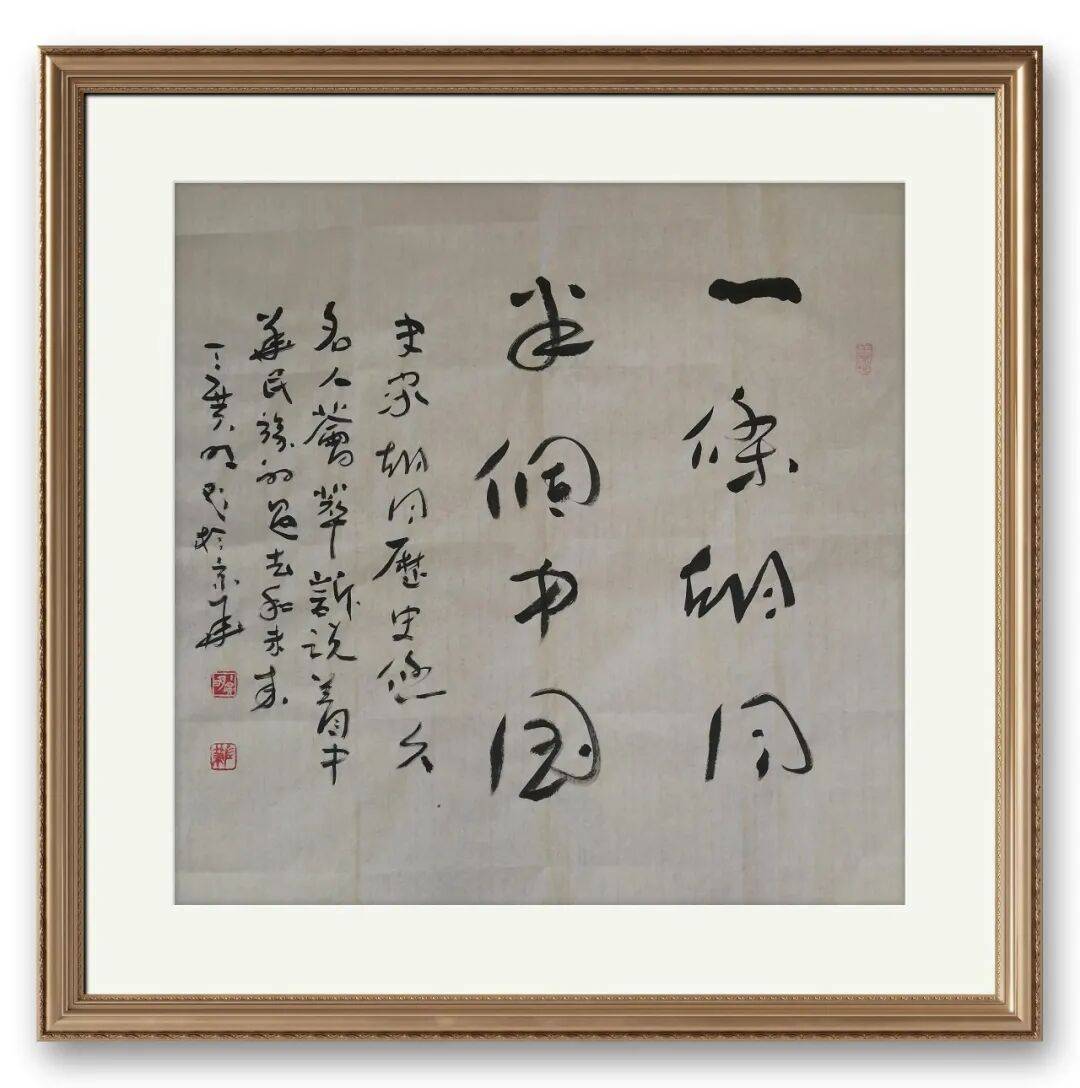 一條胡同
半個中国
史家胡同歷史悠久
名人薈萃訴说着中
華民族的過去和未来
於京華